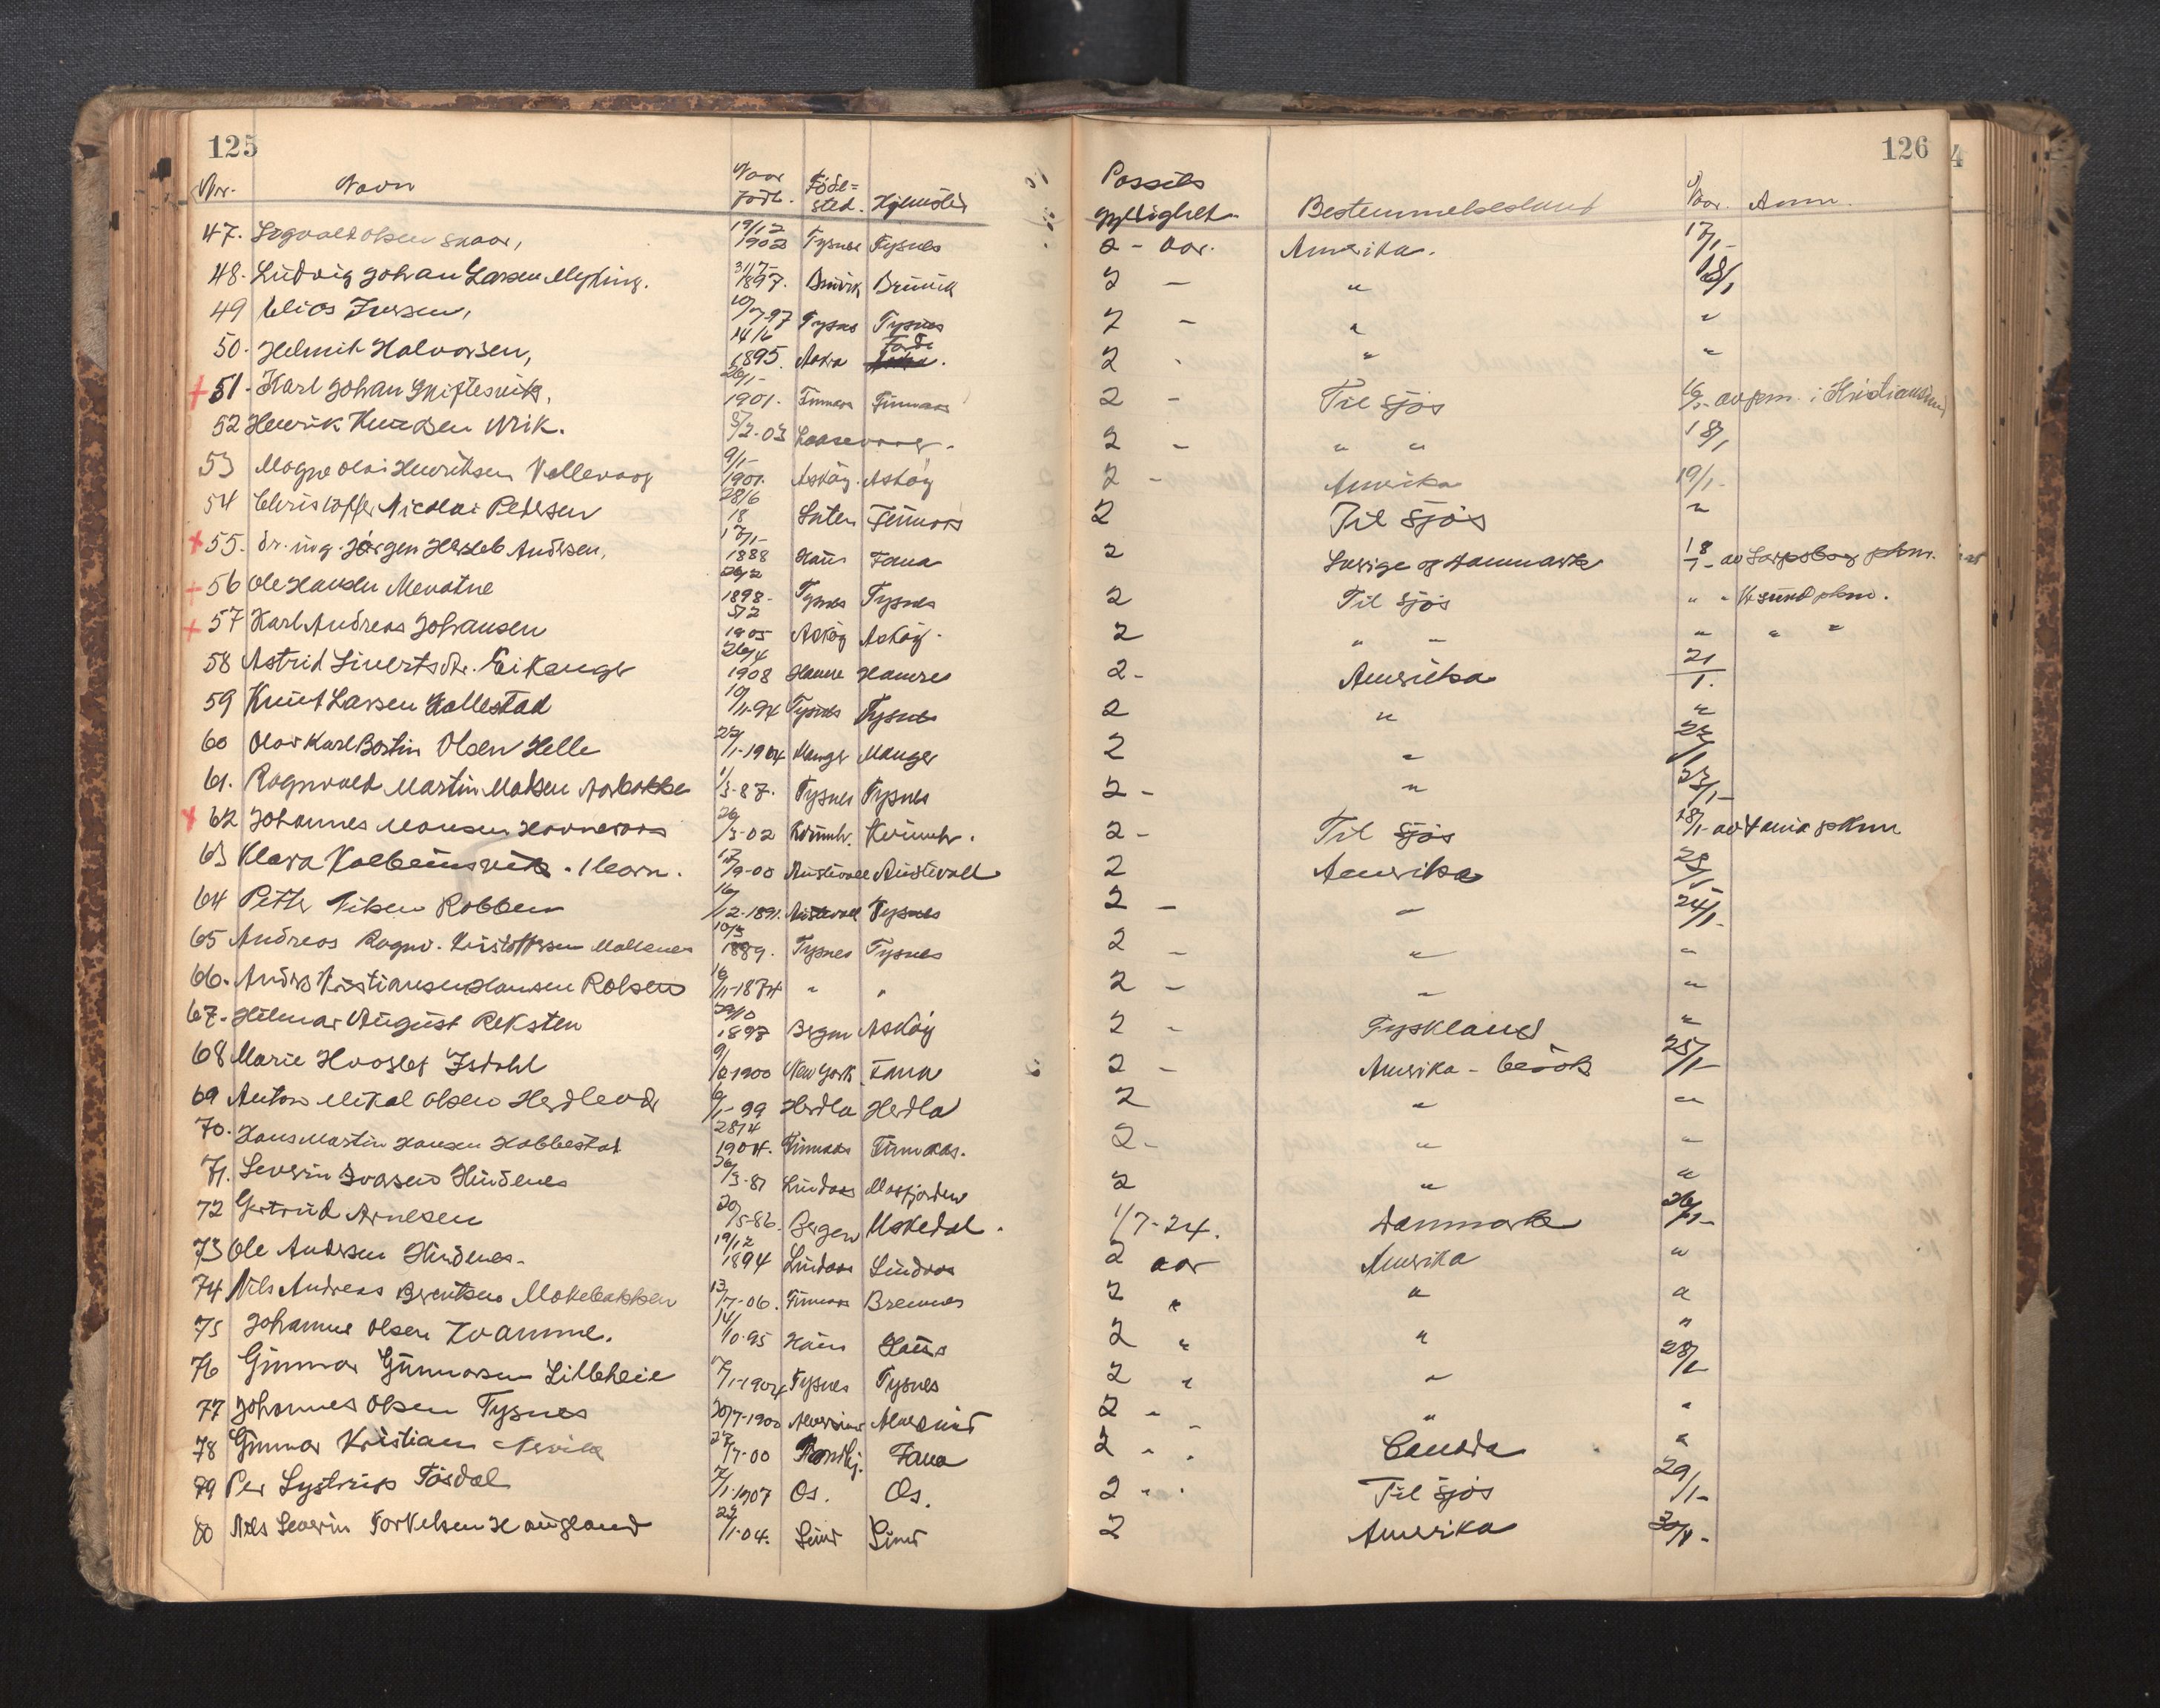 125
126
Nr. Navn Naar født. Föde-sted. Hjemsted Passets gyldighet Bestemmelsesland Naar. Anm.
47. Sigvald Olsen Skaar, 19/12 1902 Tysnes Tysnes 2 - aar. Amerika. 17/1-
48. Ludvig Johan Larsen Myking. 31/7- 1897. Bruvik Bruvik 2 - " 18/1
49 Elias Iversen, 10/7-97 Tysnes Tysnes 2 - " "
50. Helmik Halvorsen, 14/6 1895. Askra 2 - " "
+ 51. Karl Johan Skiftesvik, 26/1- 1901. Finnaas Finnaas 2 - Til Sjös 16/1- av pkm. i Kristiansund
52 Henrik Knudsen Urik. 5/2-03 2 - " " 18/1
53 Magne Olai Henriksen Vallevaag 9/1- 1901. Asköy. Asköy 2 - Amerika 19/1-
54 Christoffer Nicolai Pedersen 28/6 18 Finnaas 2 Til Sjös "
+ 55. dr. ing. Jörgen Hersleb Andersen, 17/1- 1888 Haus Fana 2 Sverige og Danmark 18/1- av Sarpsborg pkm.
+ 56 Ole Hansen Mevatne 26/2 1898- Tysnes Tysnes 2 Til Sjös " - Kr sund pkm.
+ 57 Karl Andreas Johansen 5/2 1905 Asköy Asköy. 2 " " " " "
58 Astrid Sivertsdr. Eikanger 26/4 1908 Hamre Hamre 2- Amerika 21/1.
59 Knut Larsen Hallestad 10/11-94 Tysnes Tysnes 2 " "
60 Olav Karl Bastin Olsen Helle 22/1-1904 Manger Manger 2 " 22/1
61. Ragnvald Martin Madsen Aarbakke 1/3-87. Tysnes Tysnes 2 - " 23/1-
+ 62 Johannes Monsen 26/3-02 Kvinnh. Kvinnh. 2- Til Sjös 18/1- av Fana pkm
63 Klara Kolbeinsvik. 1 barn. 17/9-00 Austevoll Austevoll 2 Amerika 23/1
64 Petter 16/12-1891. Austevoll Tysnes 2 - " 24/1-
65 Andreas Ragnv. Kristoffersen 10/3 1889. Tysnes Tysnes 2 - " "
66. Anders Kristiansen Hansen 16/11-1874 " " 2 - " "
67. Hilmar August Reksten 29/10 1897 Bergen Asköy 2 - Tyskland "
68 Marie Isdahl 9/2-1900 New York Fana 2 - Amerika - besök 25/1-
69 Anton Mikal Olsen 6/1-99 Herdla Herdla 2 " "
70. Hans Martin Hansen Habbestad 28/4 1904. Finnaas Finnaas. 2- " "
71. Severin Ivarsen Hindenes 26/3-81 Lindaas Masfjorden 2 " "
72 Gertrud Arnesen 20/5-86. Bergen Uskedal. 1/7-24. Danmark 26/1-
73 Ole Andersen Hindenes. 19/12 1894 Lindaas Lindaas 2 aar Amerika "
74 Nils Andreas Berentsen Mokebakken 13/7-06. Finnaas Bremnes 2 " " "
75 Johannes Olsen Kvamme. 14/10-95 Haus Haus 2 " " "
76 Gunnar Gunnarsen Litleheie 7/1-1904 Tysnes Tysnes 2 " " 28/1
77 Johannes Olsen Tysnes 30/7-1900 Alversund Alversund 2 " " "
78 Gunnar Kristian 27/7-00 Trondhj. Fana 2 " " Canada "
79 Per Lystrup Tösdal 7/1-1907 Os. Os. 2 " " Til Sjös 29/1-
80 Nils Severin Torkelsen Haugland 22/1-04. Sund Sund 2 Amerika